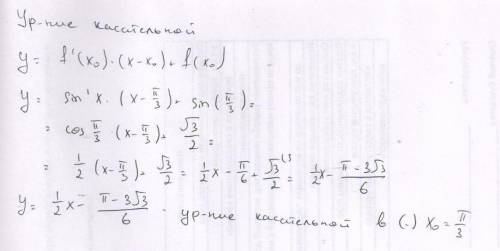 Ур-ние касательной
y = f'(x₀)·(x-x₀)+f(x₀)
y = sin'x·(x-π/3)+sin(π/3)=
= cos π/3 (x-π/3)+√3/2 =
= 1/2 (x-π/3)+√3/2 = 1/2x-π/6+√3/2^(3 = 1/2x-(π-3√3)/6
y = 1/2x-(π-3√3)/6 - ур-ние касательной в (·) x₀=π/3